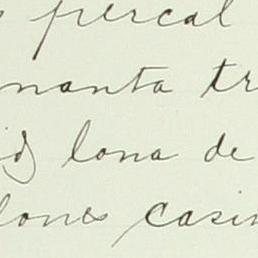 percal
manta tr
id) lona de
lones casim